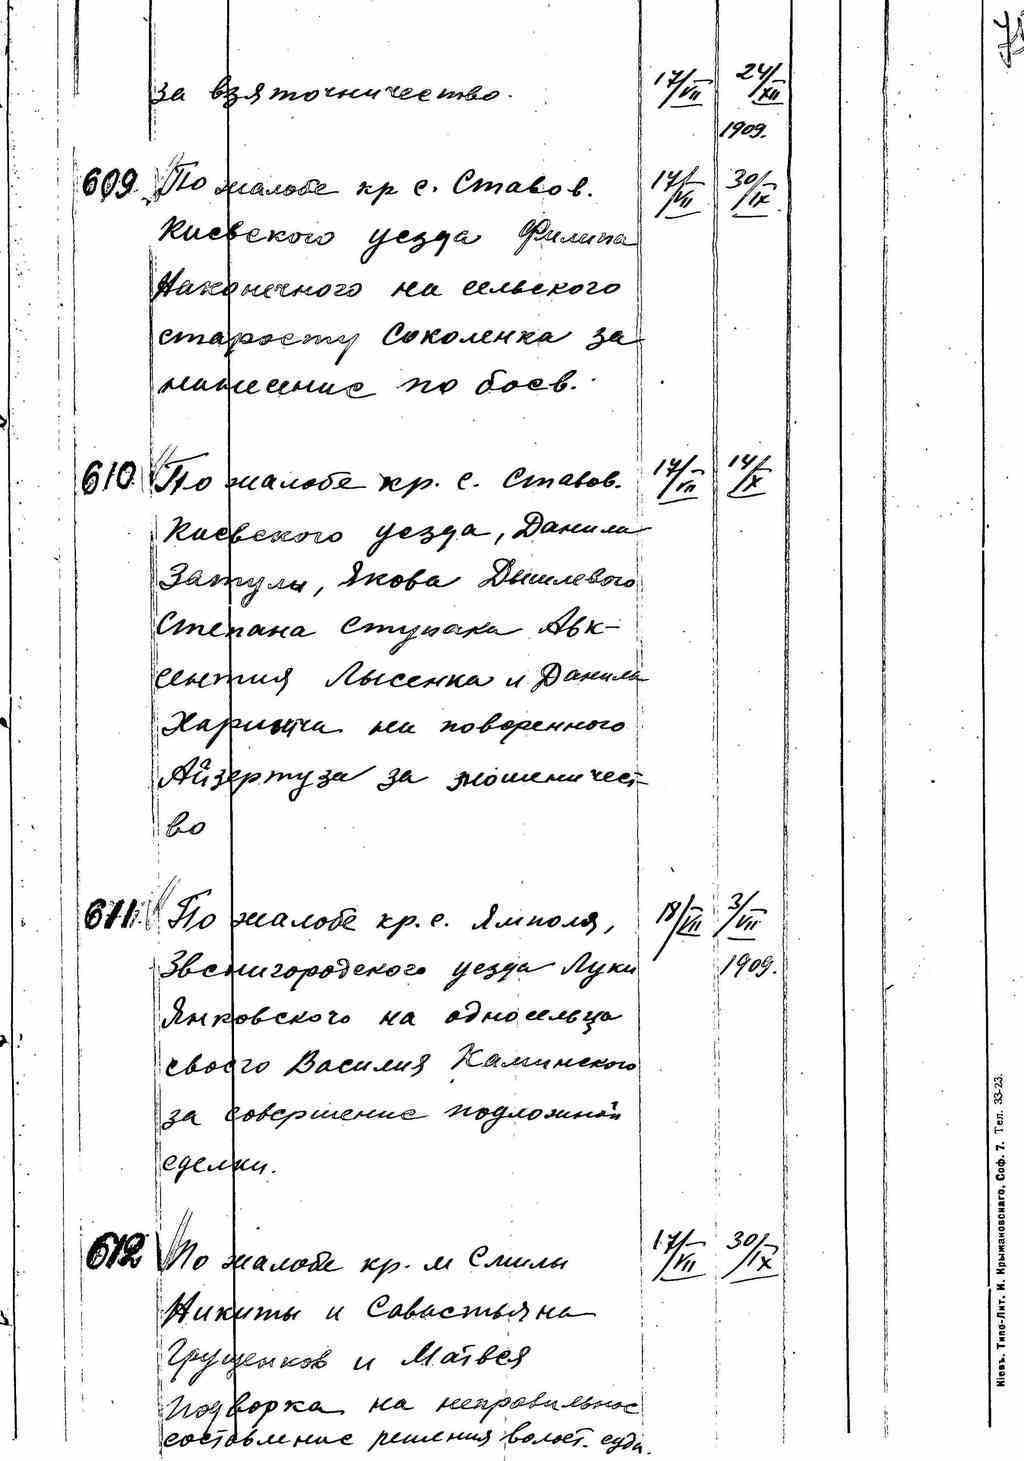 за взяточничество. 17/VII 24/XII
1909.
609. По жалобе кр с. Ставов. 17/VII 30/IX
Киевского уезда Филипа
Наконечного на сельского
старосту Соколенка за
нанесение по боев.
610 По жалобе кр. с. Ставов. 17/VII 14/X
Киевского уезда, Данила
Затулы, Якова Дышлевого
Степана Ступака Авк-
сентия Лысенка и Данила
на поверенного
за мошеничест-
во
611. По жалобе кр. с. Ямполя, 18/VII 3/VII
Звенигородского уезда Луки 1909.
Янковского на односельца
своего Василия Каминского
за совершение подложной
сделки.
612 По жалобе кр. м Смилы 17/VII 30/IX
Никиты и Савастьяна
Грущенков и Матвея
Подворка на неправильное
составление решения волост. суда.
Кіевъ. Типо-Лит. И. Крыжановскаго, Соф. 7. Тел. 33-23.